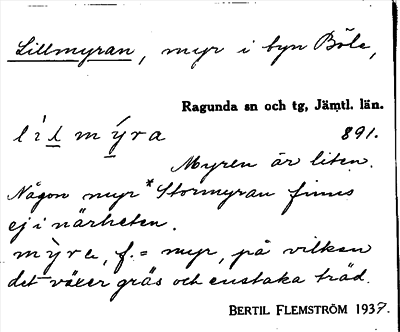 Lillmyran, myr i byn Böle,
Ragunda sn och tg, Jämtl. län.
lìl mýra 891.
Myren är liten.
Någon myr *Stormyran finns
ej i närheten.
mỳra, f. = myr, på vilken
det växer gräs och enstaka träd.
BERTIL FLEMSTRÖM 1937.